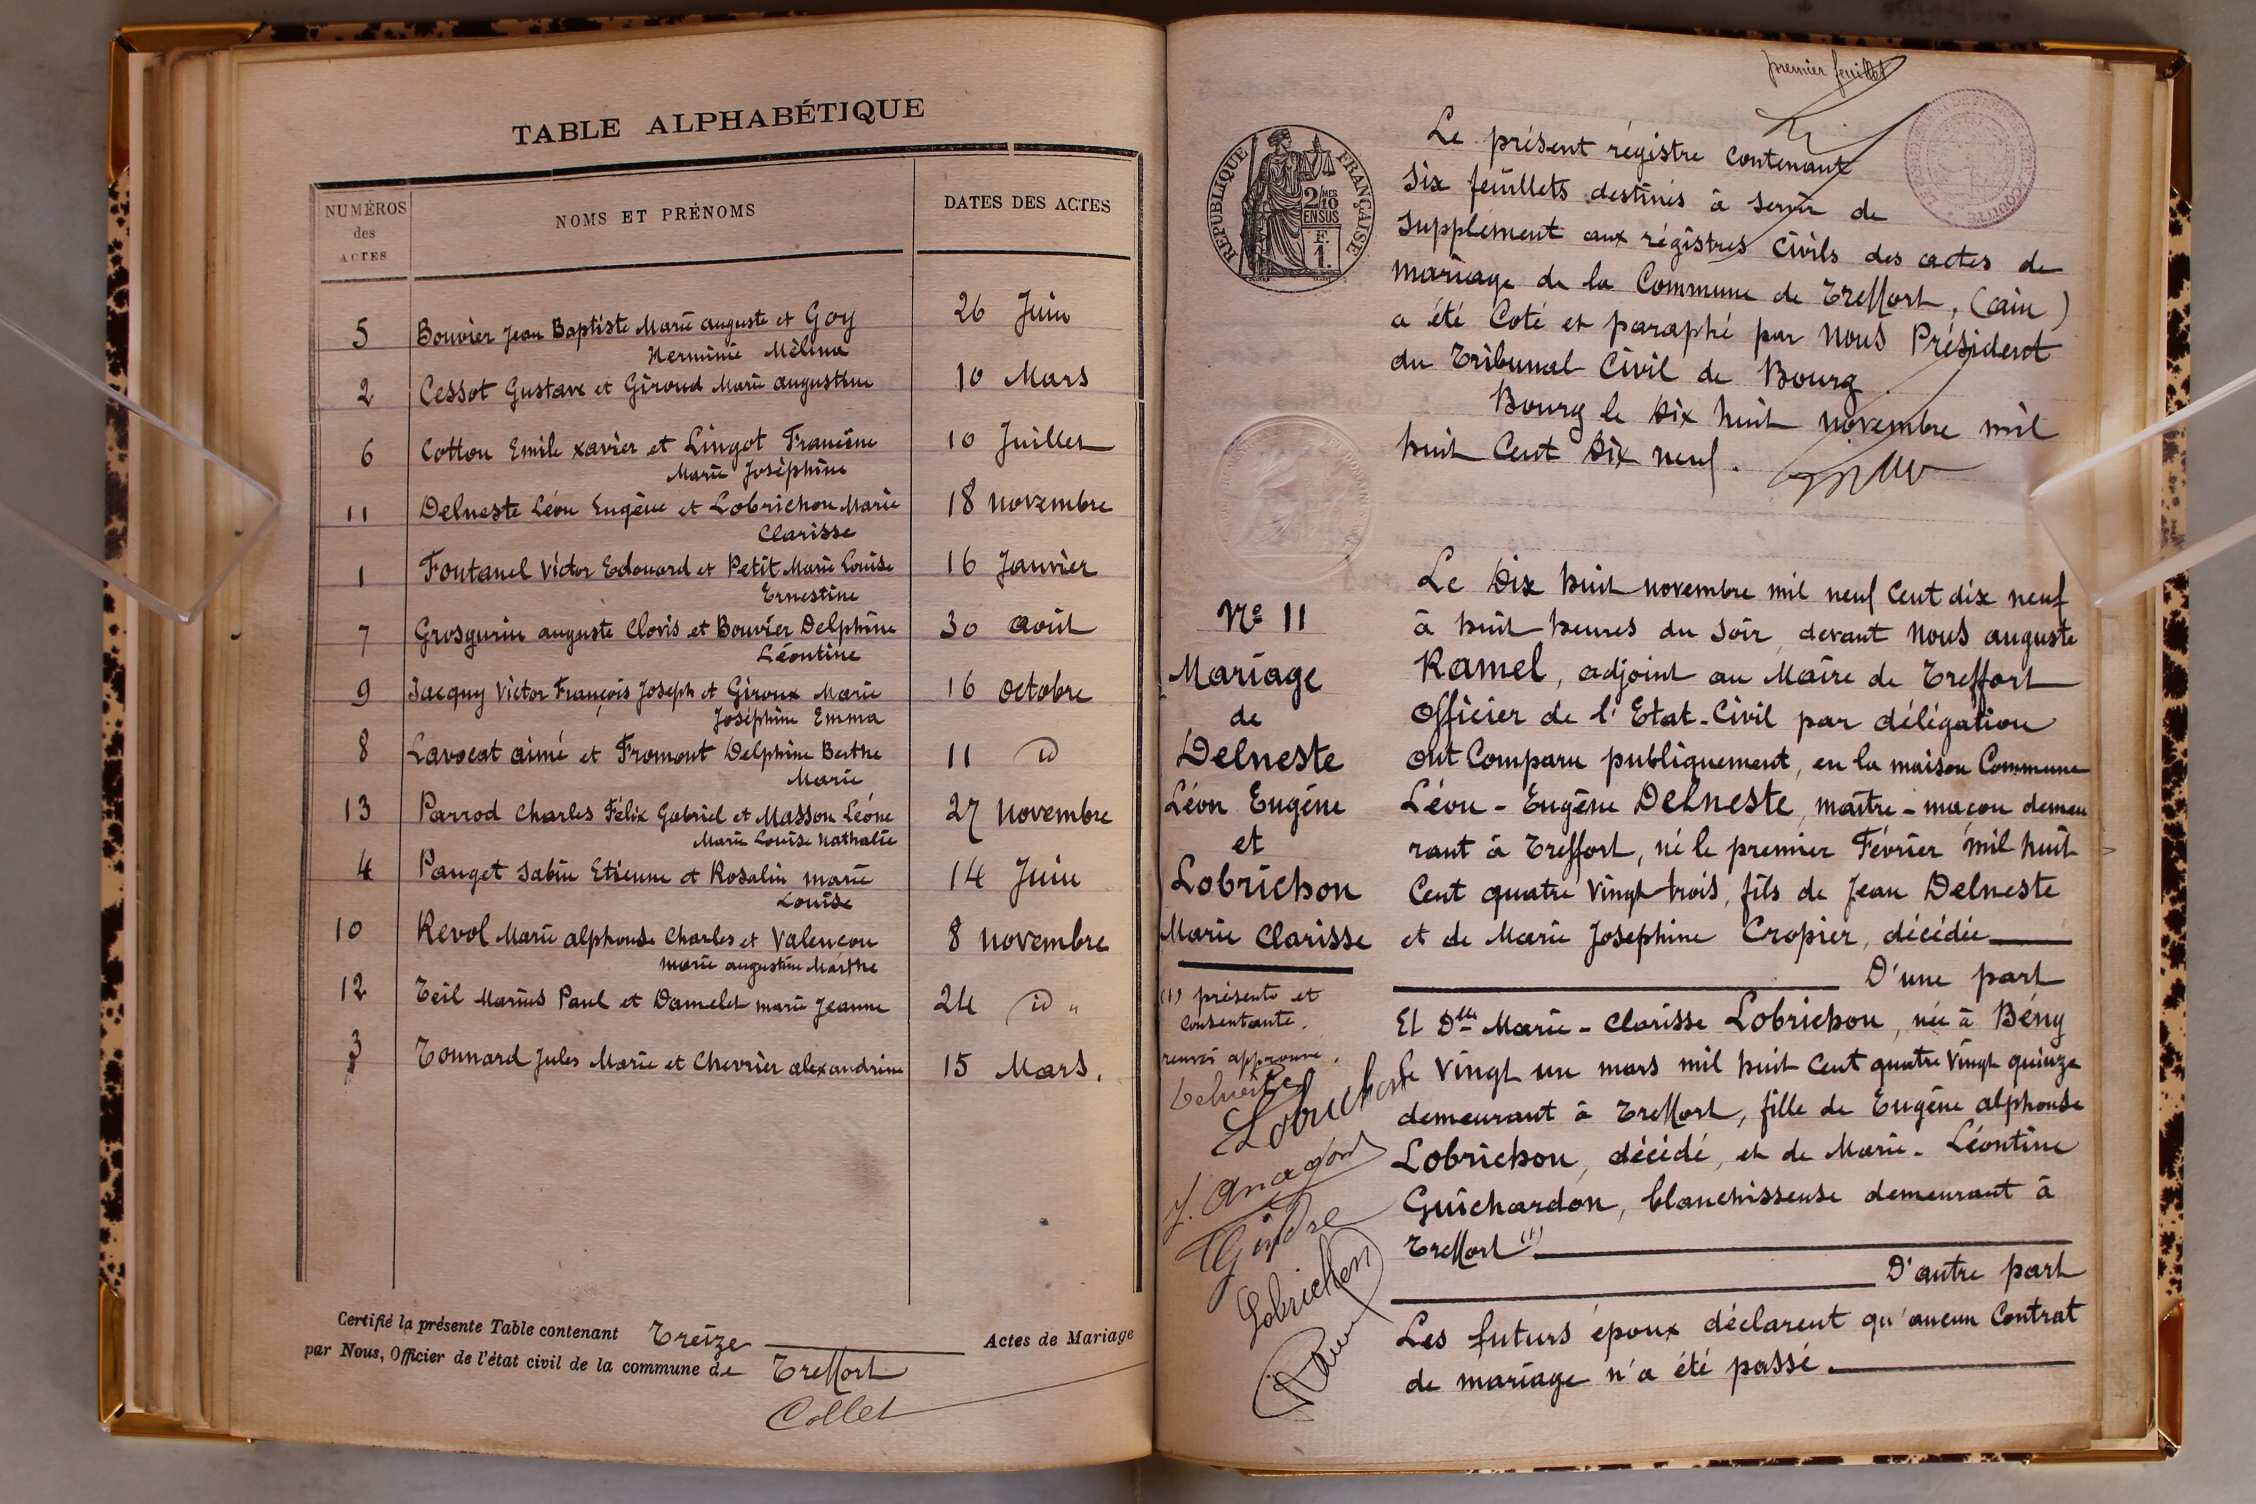 TABLE ALPHABÉTIQUE
NUMÉROS des ACTES
NOMS ET PRÉNOMS
DATES DES ACTES
5 Bouvier Jean Baptiste Marie auguste et Goy 26 Juin
Herminie Mélina
2 Cessot Gustave et Giroud Marie augustine 10 Mars
6 Cotton Emile xavier et Lingot Francine 10 Juillet
Marie Joséphine
11 Delneste Léon Eugène et Lobrichon Marie 18 novembre
Clarisse
1 Fontanel Victor Edouard et Petit Marie Louise 16 Janvier
Ernestine
7 Grosgurin auguste Clovis et Bouvier Delphine 30 août
Léontine
9 Jacquy Victor François Joseph et Giroux Marie 16 octobre
Joséphine Emma
8 Lavocat aimé et Fromont Delphine Berthe 11 id
Marie
13 Parrod Charles Félix Gabriel et Masson Léone 27 novembre
Marie Louise Nathalie
4 Pauget Sabin Etienne et Rosalin marie 14 Juin
Louise
10 Revol Marie alphonse Charles et Valençon 8 novembre
marie augustine Marthe
12 Teil Marius Paul et Damelet marie Jeanne 24 id "
3 Tonnard Jules Marie et Chevrier alexandrine 15 Mars.
Certifié la présente Table contenant Treize Actes de Mariage
par Nous, Officier de l'état civil de la commune de Treffort
Collet
premier feuillet
RÉPUBLIQUE FRANÇAISE
2/10 MES
EN SUS
F.
1.
Le présent régistre contenant
six feuillets destinés à servir de
supplément aux régistres civils des actes de
mariage de la Commune de Treffort, (ain)
a été Coté et paraphé par nous Président
du Tribunal Civil de Bourg
Bourg le dix huit novembre mil
huit Cent dix neuf.
No 11
Mariage
de
Delneste
Léon Eugène
et
Lobrichon
Marie Clarisse
(1) présente et
consentante.
renvoi approuvé.
Delneste
Lobrichon
Lobrichon
Le dix huit novembre mil neuf Cent dix neuf
à huit heures du soir, devant nous auguste
Ramel, adjoint au Maire de Treffort
officier de l'Etat-Civil par délégation
ont Comparu publiquement, en la maison Commune
Léon-Eugène Delneste, maître-maçon demeu
rant à Treffort, né le premier Février mil huit
Cent quatre vingt trois, fils de Jean Delneste
et de Marie Josephine Cropier, décédée
D'une part
Et Dlle Marie-Clarisse Lobrichon, née à Bény
le vingt un mars mil huit Cent quatre vingt quinze
demeurant à Treffort, fille de Eugène alphonse
Lobrichon, décédé, et de Marie-Léontine
Guichardon, blanchisseuse demeurant à
Treffort (1)
D'autre part
Les futurs époux déclarent qu'aucun Contrat
de mariage n'a été passé.